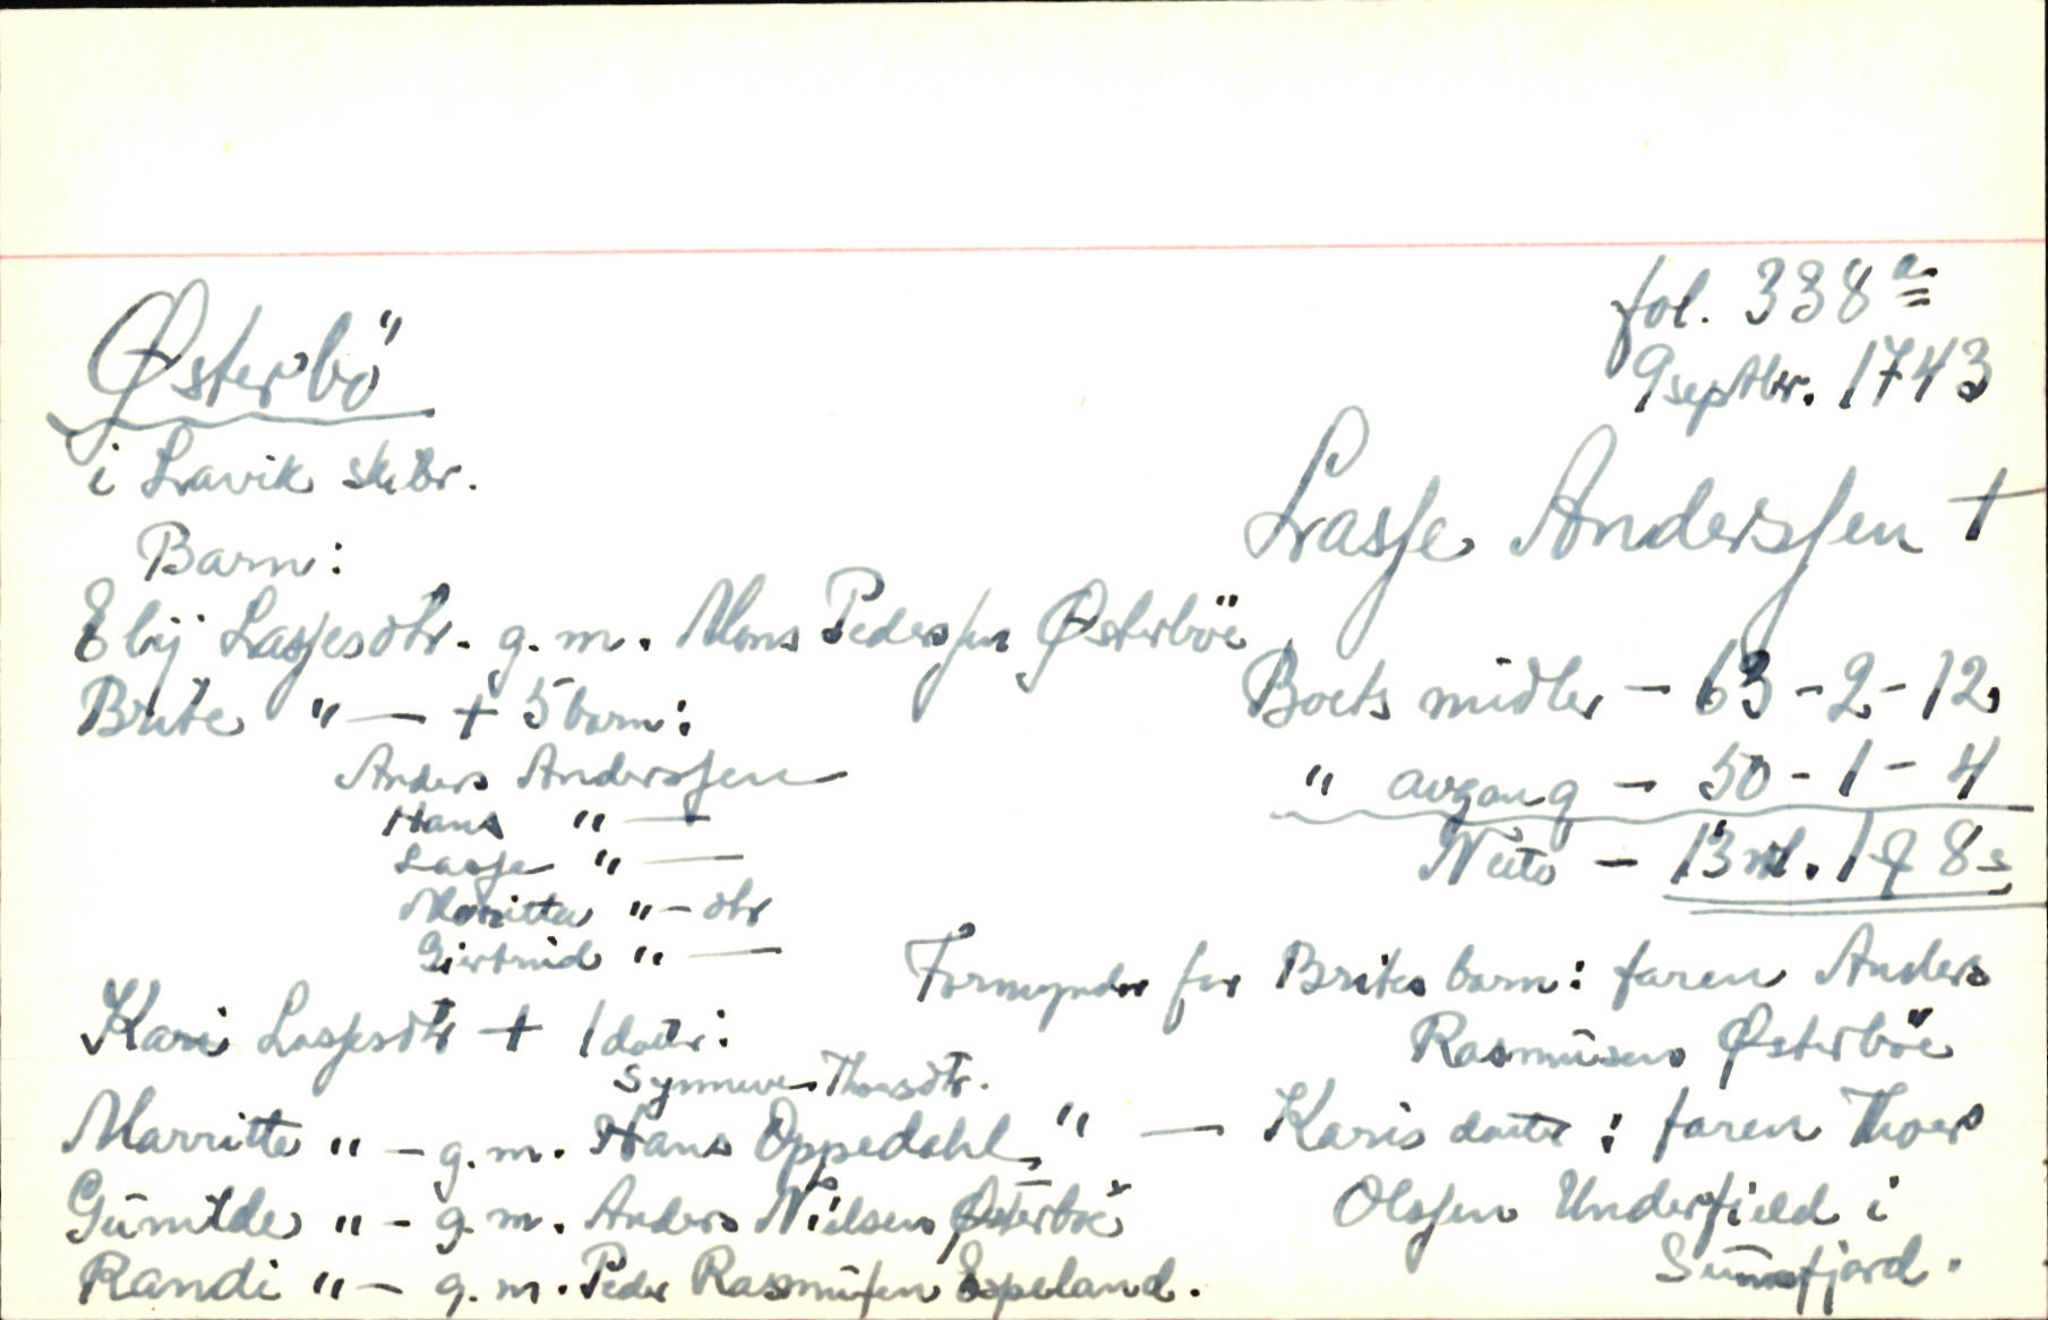 fol. 338 a
9 septbr. 1743
Østerbö
i Lavik skbr.
Lasse Anderssen †
Barn:
Elij Lassesdtr. g. m. Mons Pederssen Østerböe
Brite " — † 5 barn:
Anders Anderssen
Hans " —
Lasse " —
Marritte " - dtr
Giertrud " —
Kari Lassesdtr † 1 dattr:
Synneve Thoresdtr.
Marritte " - g. m. Hans Oppedahl
Gunilde " - g. m. Anders Nielsen Østerböe
Randi " - g. m. Peder Rasmussen Espeland.
Boets midler - 63 - 2 - 12
" avgang - 50 - 1 - 4
Netto - 13 rd. 1 8 s
Formynder for Brites barn: faren Anders
Rasmusen Österböe
" — Karis dattr: faren Thoer
Olssen Underfield i
Sunnfjord.